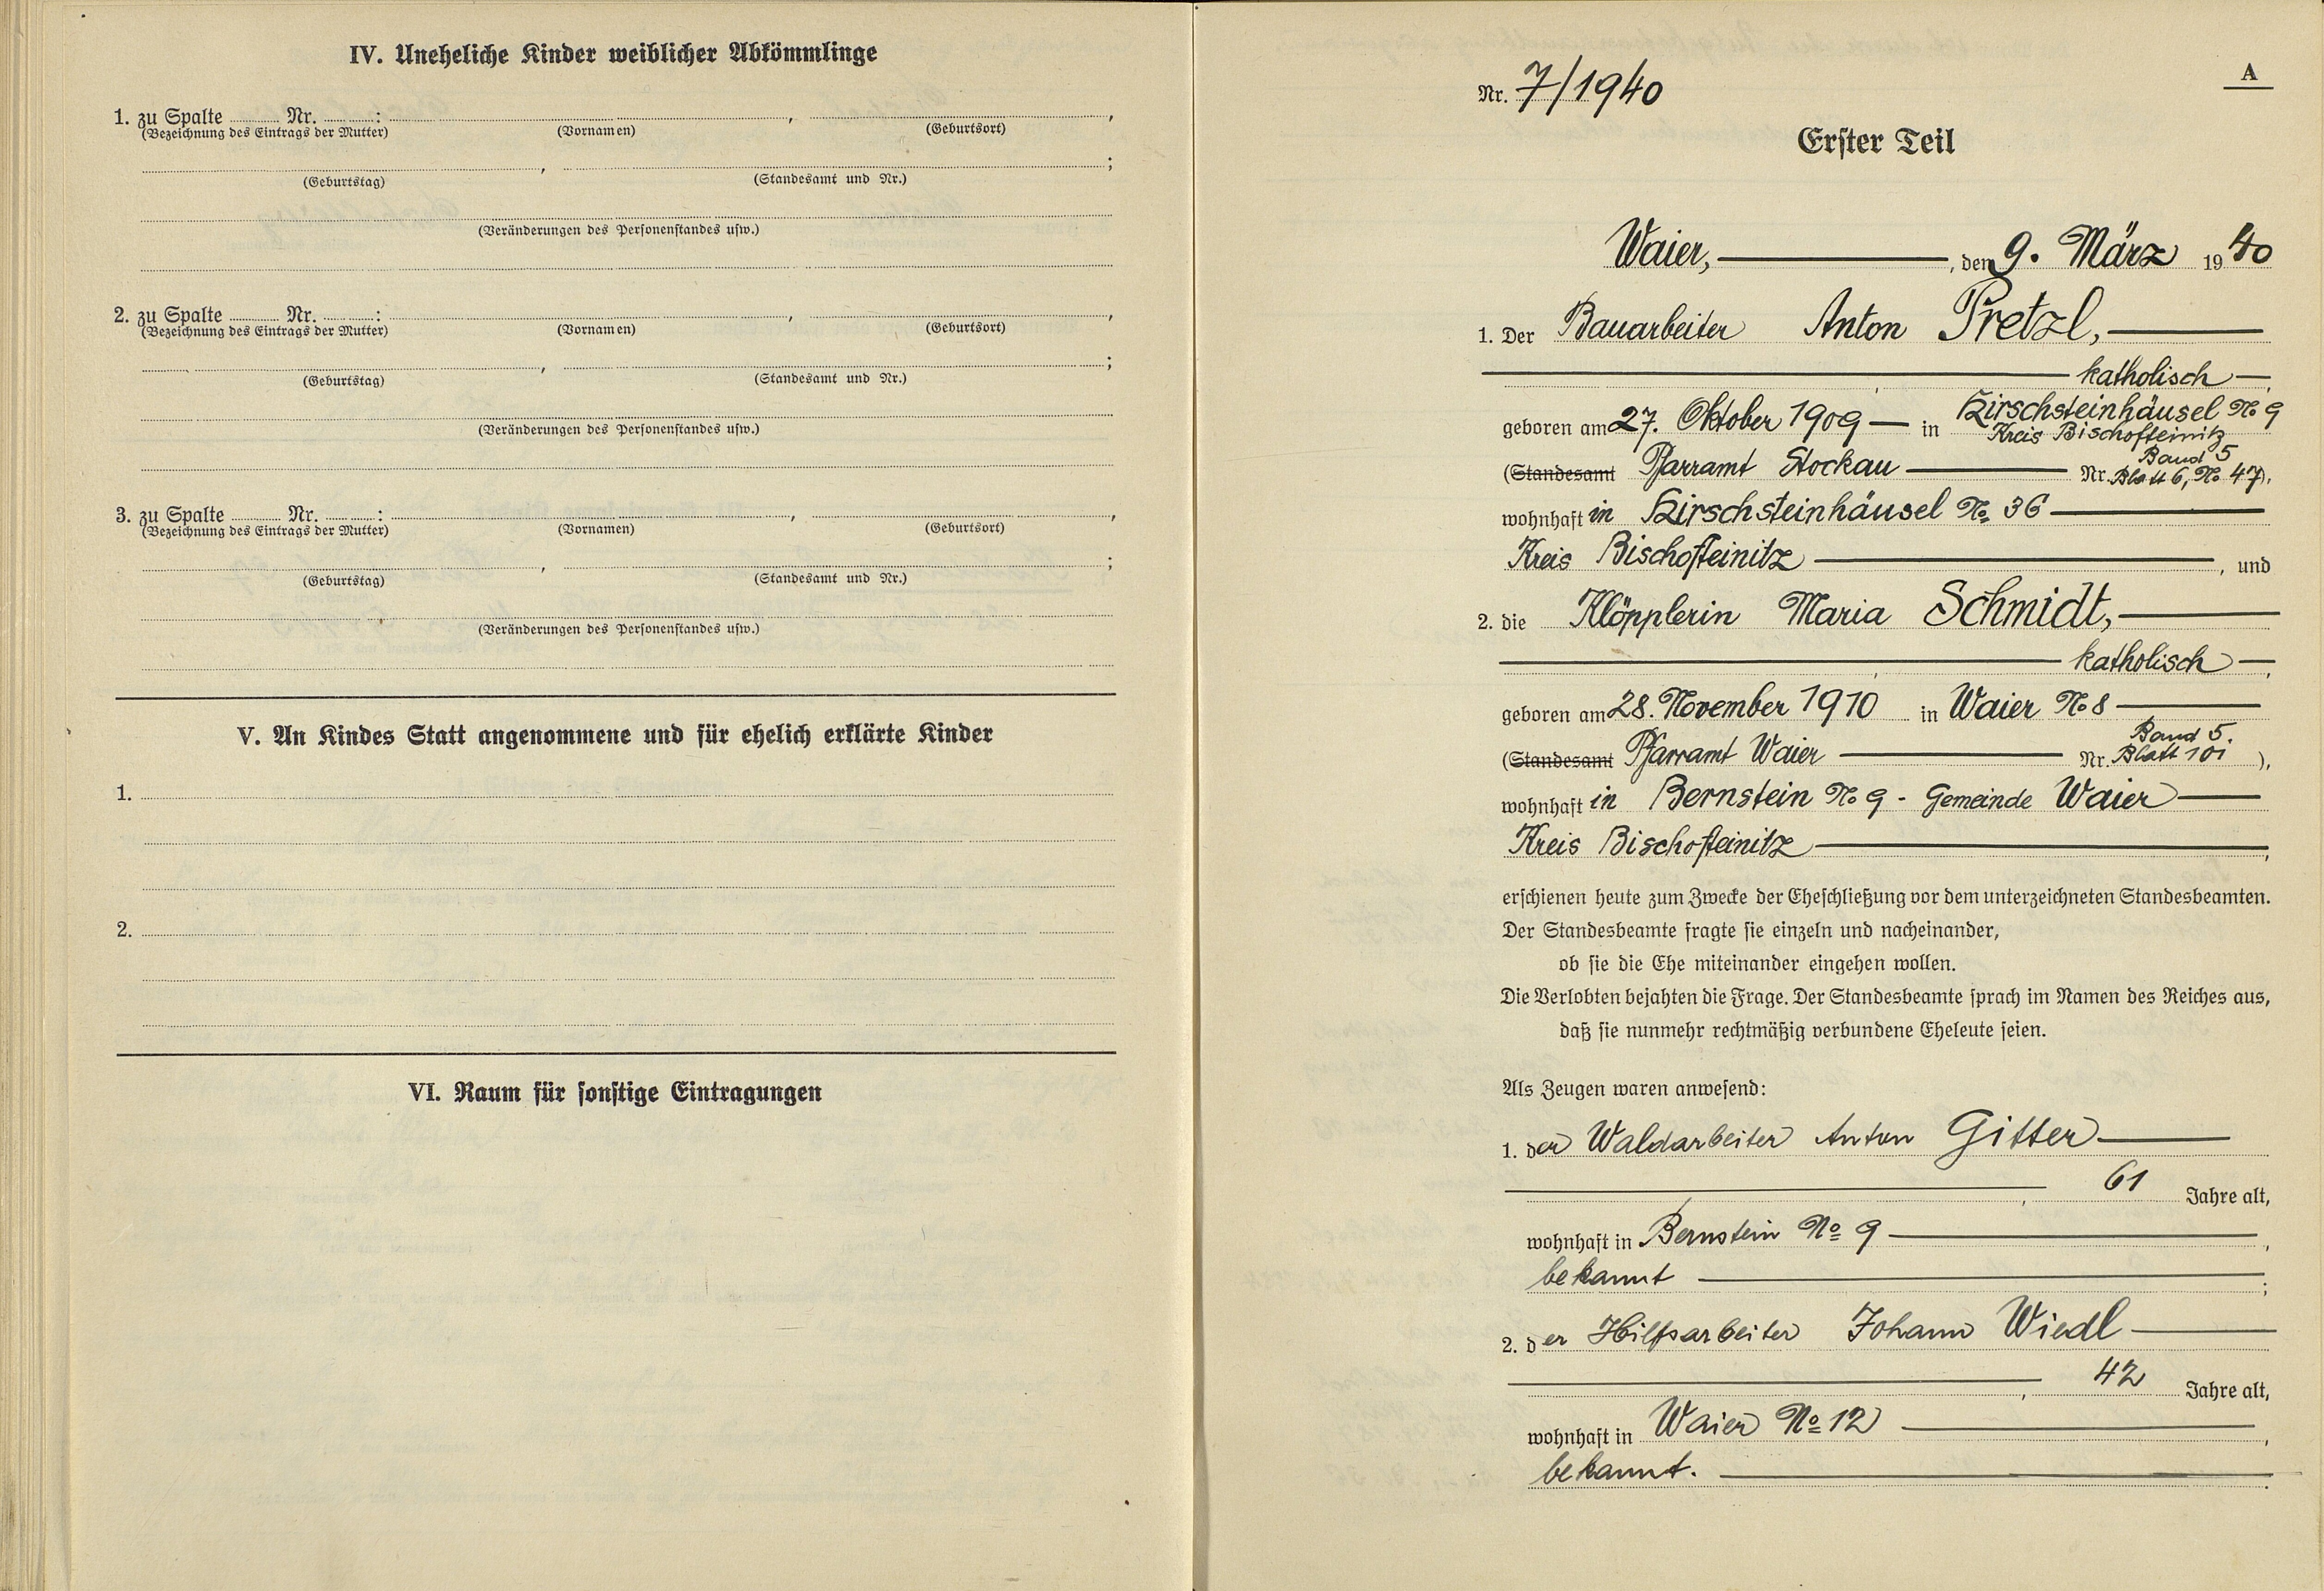 IV. Uneheliche Kinder weiblicher Abkömmlinge
1. zu Spalte ........ Nr. ........:
(Bezeichnung des Eintrags der Mutter) (Vornamen) (Geburtsort)
(Geburtstag) (Standesamt und Nr.)
(Veränderungen des Personenstandes usw.)
2. zu Spalte ........ Nr. ........:
(Bezeichnung des Eintrags der Mutter) (Vornamen) (Geburtsort)
(Geburtstag) (Standesamt und Nr.)
(Veränderungen des Personenstandes usw.)
3. zu Spalte ........ Nr. ........:
(Bezeichnung des Eintrags der Mutter) (Vornamen) (Geburtsort)
(Geburtstag) (Standesamt und Nr.)
(Veränderungen des Personenstandes usw.)
V. An Kindes Statt angenommene und für ehelich erklärte Kinder
1.
2.
VI. Raum für sonstige Eintragungen
A
Nr. 7/1940
Erster Teil
Waier, , den 9. März 1940
1. Der Bauarbeiter Anton Pretzl,
katholisch,
geboren am 27. Oktober 1909 in Hirschsteinhäusel No 9
Kreis Bischofteinitz
Band 5
(Standesamt Pfarramt Stockau Nr. Blatt 6, No 47),
wohnhaft in Hirschsteinhäusel No 36
Kreis Bischofteinitz , und
2. die Klöpplerin Maria Schmidt,
katholisch,
geboren am 28. November 1910 in Waier No 8
Band 5.
(Standesamt Pfarramt Waier Nr. Blatt 101),
wohnhaft in Bernstein No 9 - Gemeinde Waier
Kreis Bischofteinitz,
erschienen heute zum Zwecke der Eheschließung vor dem unterzeichneten Standesbeamten.
Der Standesbeamte fragte sie einzeln und nacheinander,
ob sie die Ehe miteinander eingehen wollen.
Die Verlobten bejahten die Frage. Der Standesbeamte sprach im Namen des Reiches aus,
daß sie nunmehr rechtmäßig verbundene Eheleute seien.
Als Zeugen waren anwesend:
1. der Waldarbeiter Anton Gitter
, 61 Jahre alt,
wohnhaft in Bernstein No 9,
bekannt ;
2. der Hilfsarbeiter Johann Wiedl
, 42 Jahre alt,
wohnhaft in Waier No 12,
bekannt.